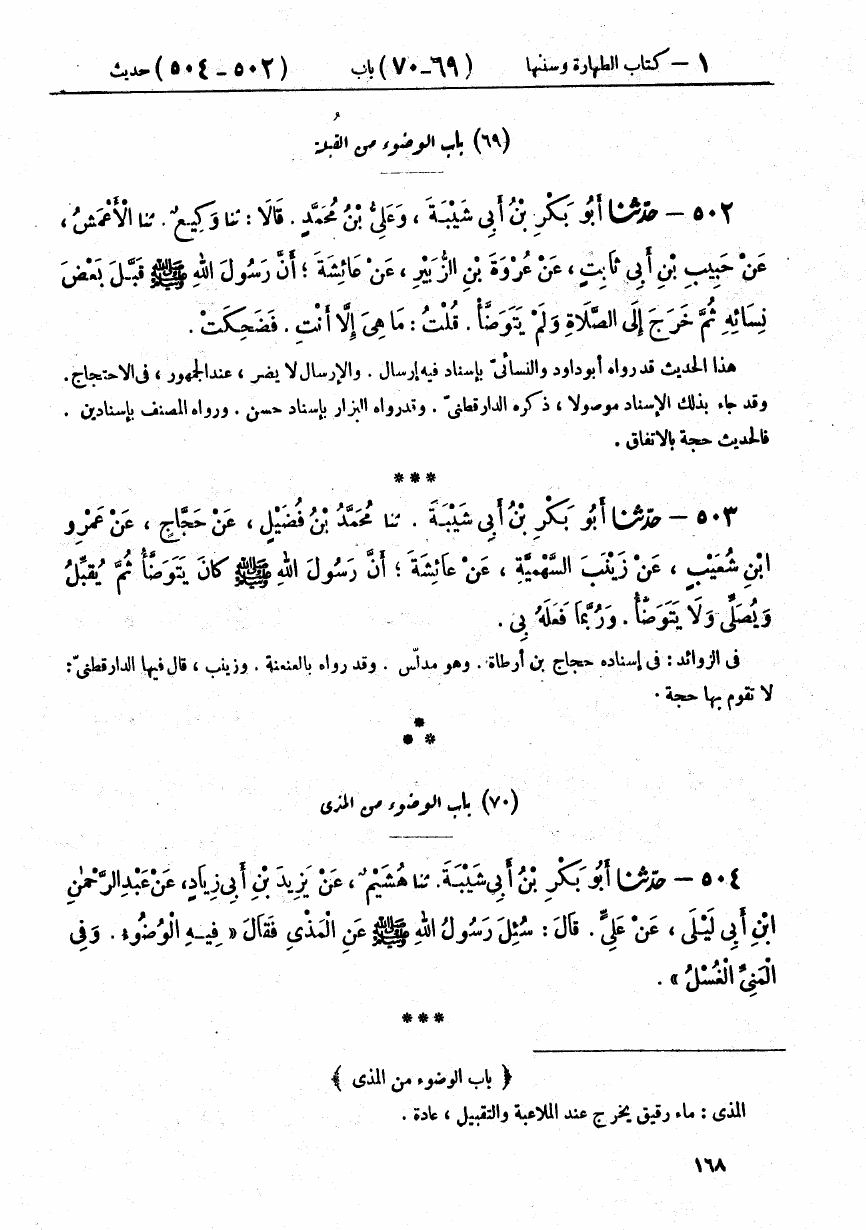 ١ – كتاب الطهارة وسننها (٦٩-٧٠) باب (٥٠٢-٥٠٤) حديث
(٦٩) باب الوضوء من القُبلة
٥٠٢ – حدّثنا أَبُو بَكْرِ بْنُ أَبِى شَيْبَةَ ، وَعَلِىُّ بْنُ مُحَمَّدٍ . قَالَا : ثنا وَكِيعٌ . ثنا الْأَعْمَشُ ،
عَنْ حَبِيبِ بْنِ أَبِى ثَابِتٍ ، عَنْ عُرْوَةَ بْنِ الزُّبَيْرِ ، عَنْ عَائِشَةَ ؛ أَنَّ رَسُولَ اللهِ ﷺ قَبَّلَ بَعْضَ
نِسَائِهِ ثُمَّ خَرَجَ إِلَى الصَّلَاةِ وَلَمْ يَتَوَضَّأْ . قُلْتُ : مَا هِىَ إِلَّا أَنْتِ . فَضَحِكَتْ .
هذا الحديث قد رواه أبو داود والنسائىّ بإسناد فيه إرسال . والإرسال لا يضر ، عند الجمهور ، فى الاحتجاج .
وقد جاء بذلك الإسناد موصولا ، ذكره الدارقطنىّ . وقد رواه البزار بإسناد حسن . ورواه المصنف بإسنادين .
فالحديث حجة بالاتفاق .
***
٥٠٣ – حدّثنا أَبُو بَكْرِ بْنُ أَبِى شَيْبَةَ . ثنا مُحَمَّدُ بْنُ فُضَيْلٍ ، عَنْ حَجَّاجٍ ، عَنْ عَمْرِو
ابْنِ شُعَيْبٍ ، عَنْ زَيْنَبَ السَّهْمِيَّةِ ، عَنْ عَائِشَةَ ؛ أَنَّ رَسُولَ اللهِ ﷺ كَانَ يَتَوَضَّأُ ثُمَّ يُقَبِّلُ
وَيُصَلِّى وَلَا يَتَوَضَّأُ . وَرُبَّمَا فَعَلَهُ بِى .
فى الزوائد : فى إسناده حجاج بن أرطاة . وهو مدلّس . وقد رواه بالعنعنة . وزينب ، قال فيها الدارقطنىّ :
لا تقوم بها حجة .
*
* *
(٧٠) باب الوضوء من المذى
٥٠٤ – حدّثنا أَبُو بَكْرِ بْنُ أَبِى شَيْبَةَ . ثنا هُشَيْمٌ ، عَنْ يَزِيدَ بْنِ أَبِى زِيَادٍ ، عَنْ عَبْدِ الرَّحْمٰنِ
ابْنِ أَبِى لَيْلَى ، عَنْ عَلِىٍّ . قَالَ : سُئِلَ رَسُولُ اللهِ ﷺ عَنِ الْمَذْىِ فَقَالَ « فِيهِ الْوُضُوءُ . وَفِى
الْمَنِىِّ الْغُسْلُ » .
***
﴿ باب الوضوء من المذى ﴾
المذى : ماء رقيق يخرج عند الملاعبة والتقبيل ، عادة .
١٦٨